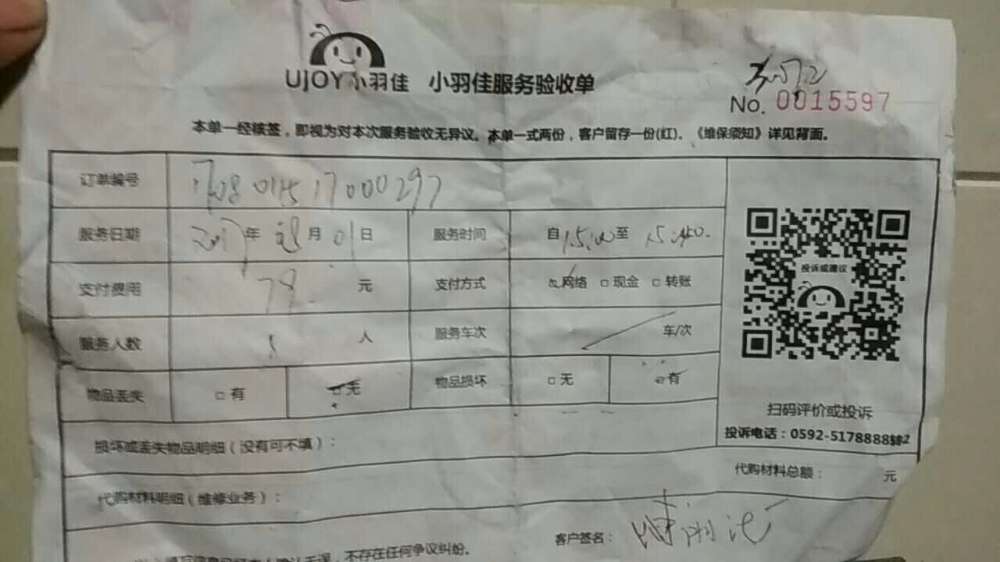 UJOY 小羽佳 小羽佳服务验收单
No. 0015597
本单一经核签，即视为对本次服务验收无异议。本单一式两份，客户留存一份(红)、《维保须知》详见背面。
订单编号
服务日期 2017年 08月 01日 服务时间 自 15:00 至 15:40.
支付费用 78. 元 支付方式 □网络 □现金 □转账
服务人数 1 人 服务车次 车/次
物品丢失 □有 □无 物品损坏 □无 □有
投诉或建议
扫码评价或投诉
投诉电话：0592-5178888转2
损坏或丢失物品明细（没有可不填）：
代购材料总额： 元
代购材料明细（维修业务）：
客户签名：
不存在任何争议纠纷。